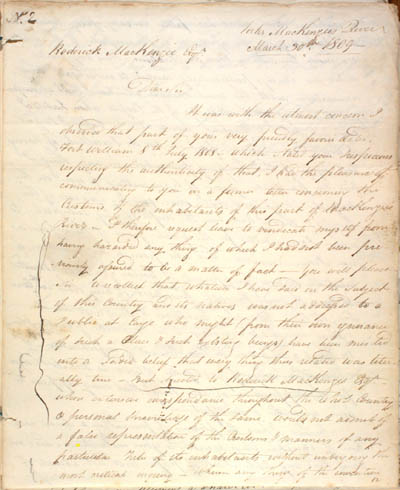 No. 2
MacKenzies River
March 30th 1809
Roderick MacKenzie Esqr
Dear Sir
It was with the utmost concern I
observed that part of your very friendly favour
Fort William 8th July 1808 - which stated your suspicions
respecting the authenticity of that I had the pleasure of
communicating to you in a former letter concerning the
Customs of the inhabitants of this part of MacKenzies
River - I therefore request leave to vindicate myself from
having hazarded any thing of which I had not been pre
viously apprized to be a matter of fact - you will please
to recollect that whatever I have said on the subject
of this Country and its natives was not addressed to a
Public at large who might from their own ignorance
of such a Place & such existing beings have been misled
into a belief that every thing thus related was liter
ally true - But to Roderick MacKenzie Esqr
whose extensive correspondence throughout the Country
& personal knowledge of the same would not admit of
a false representation of the Customs & manners of any
particular Tribe of its inhabitants without undergoing the
most critical enquiry of the